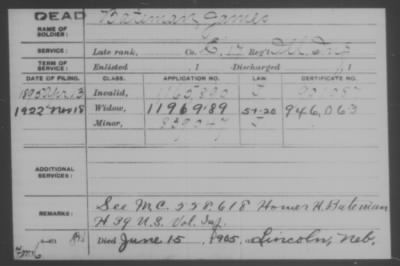 DEAD
NAME OF SOLDIER: Bateman, James
SERVICE: Late rank, Co. E, 17 Reg't Ill. Inf
TERM OF SERVICE: Enlisted 1 Discharged 1
DATE OF FILING. CLASS. APPLICATION NO. LAW. CERTIFICATE NO.
Invalid, J
1922 Nov 18 Widow, 11969.89 5-1-20 946,063
Minor, J
ADDITIONAL SERVICES:
REMARKS: See M.C. 558,618 Homer H. Bateman
H 39 U.S. Vol. Inf.
Died June 15, 1905, Lincoln, Neb.